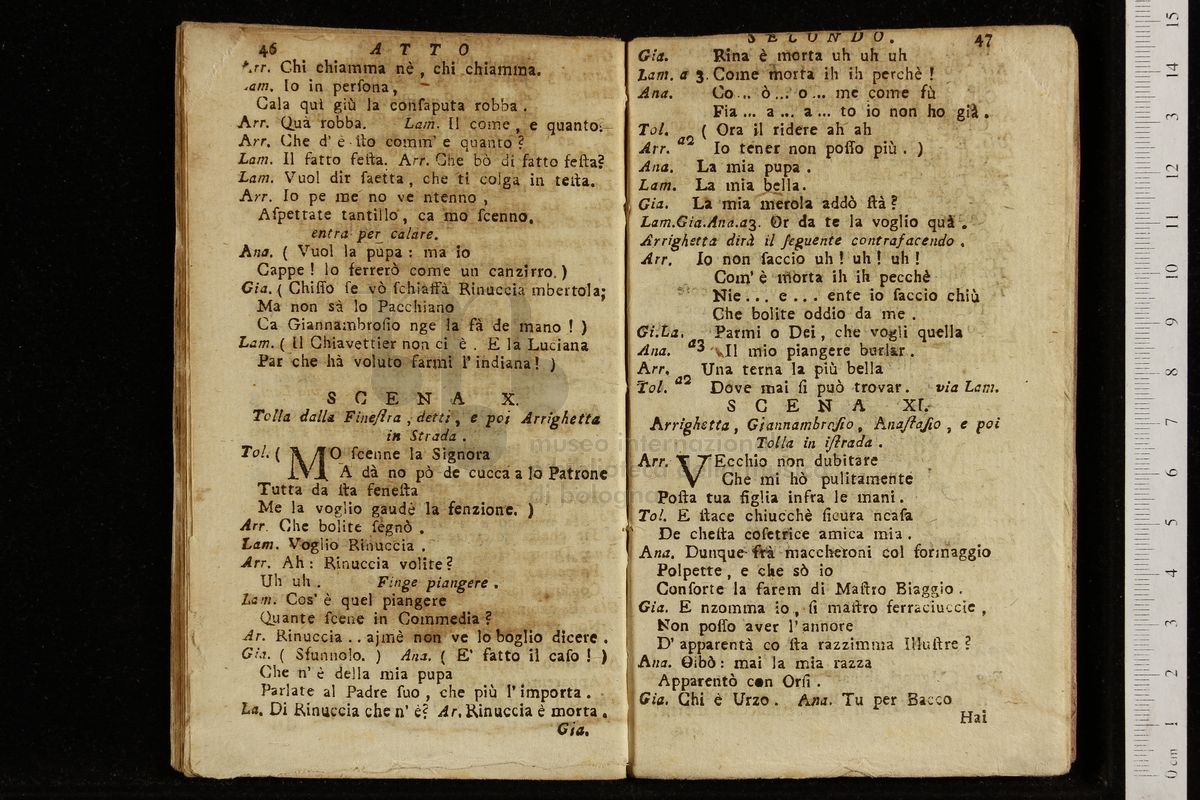 46 ATTO
Arr. Chi chiamma nè, chi chiamma.
Lam. Io in perſona,
Cala quì giù la conſaputa robba.
Arr. Quà robba. Lam. Il come, e quanto.
Arr. Che d' è ſto comm' e quanto?
Lam. Il fatto feſta. Arr. Che bò di fatto feſta?
Lam. Vuol dir ſaetta, che ti colga in teſta.
Arr. Io pe me no ve ntenno,
Aſpettate tantillo, ca mo ſcenno.
entra per calare.
Ana. ( Vuol la pupa: ma io
Cappe! lo ferrerò come un canzirro. )
Gia. ( Chiſſo ſe vò ſchiaffà Rinuccia mbertola;
Ma non sà lo Pacchiano
Ca Giannambroſio nge la fà de mano! )
Lam. ( Il Chiavettier non ci è. E la Luciana
Par che hà voluto farmi l' indiana! )
SCENA X.
Tolla dalla Fineſtra, detti, e poi Arrighetta
in Strada.
Tol. ( MO ſcenne la Signora
A dà no pò de cucca a lo Patrone
Tutta da ſta feneſta
Me la voglio gaudè la fenzione. )
Arr. Che bolite ſegnò.
Lam. Voglio Rinuccia.
Arr. Ah: Rinuccia volite?
Uh uh. Finge piangere.
Lam. Cos' è quel piangere
Quante ſcene in Commedia?
Ar. Rinuccia .. ajmè non ve lo boglio dicere.
Gia. ( Sfunnolo. ) Ana. ( E' fatto il caſo! )
Che n' è della mia pupa
Parlate al Padre ſuo, che più l' importa.
La. Di Rinuccia che n' è? Ar. Rinuccia è morta.
Gia.
SECONDO. 47
Gia. Rina è morta uh uh uh
Lam. a 3. Come morta ih ih perchè!
Ana. Co... ò... o... me come fù
Fia... a... a... to io non ho già.
Tol. ( Ora il ridere ah ah
Arr. a2 Io tener non poſſo più. )
Ana. La mia pupa.
Lam. La mia bella.
Gia. La mia merola addò ſtà?
Lam.Gia.Ana.a3. Or da te la voglio quà.
Arrighetta dirà il ſeguente contrafacendo.
Arr. Io non faccio uh! uh! uh!
Com' è morta ih ih pecchè
Nie... e... ente io faccio chiù
Che bolite oddio da me.
Gi.La. Parmi o Dei, che vogli quella
Ana. a3 Il mio piangere burlar.
Arr. Una terna la più bella
Tol. a2 Dove mai ſi può trovar. via Lam.
SCENA XI.
Arrighetta, Giannambroſio, Anaſtaſio, e poi
Tolla in iſtrada.
Arr. VEcchio non dubitare
Che mi hò pulitamente
Poſta tua figlia infra le mani.
Tol. E ſtace chiucchè ſicura ncaſa
De cheſta coſetrice amica mia.
Ana. Dunque frà maccheroni col formaggio
Polpette, e che sò io
Conſorte la farem di Maſtro Biaggio.
Gia. E nzomma io, ſi maſtro ferraciuccie,
Non poſſo aver l' annore
D' apparentà co ſta razzimma Illuſtre?
Ana. Oibò: mai la mia razza
Apparentò con Orſi.
Gia. Chi è Urzo. Ana. Tu per Bacco
Hai
museo internazionale
biblioteca
di bologna
15
14
3
12
11
10
9
8
7
6
5
4
3
2
1
0 cm